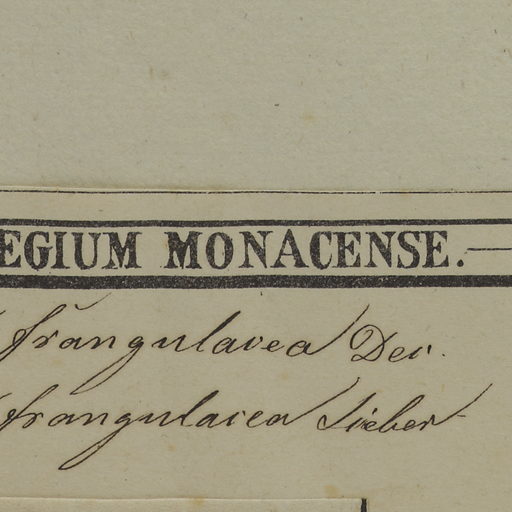 EGIUM MONACENSE.
frangulacea Dec.
frangulacea Sieber